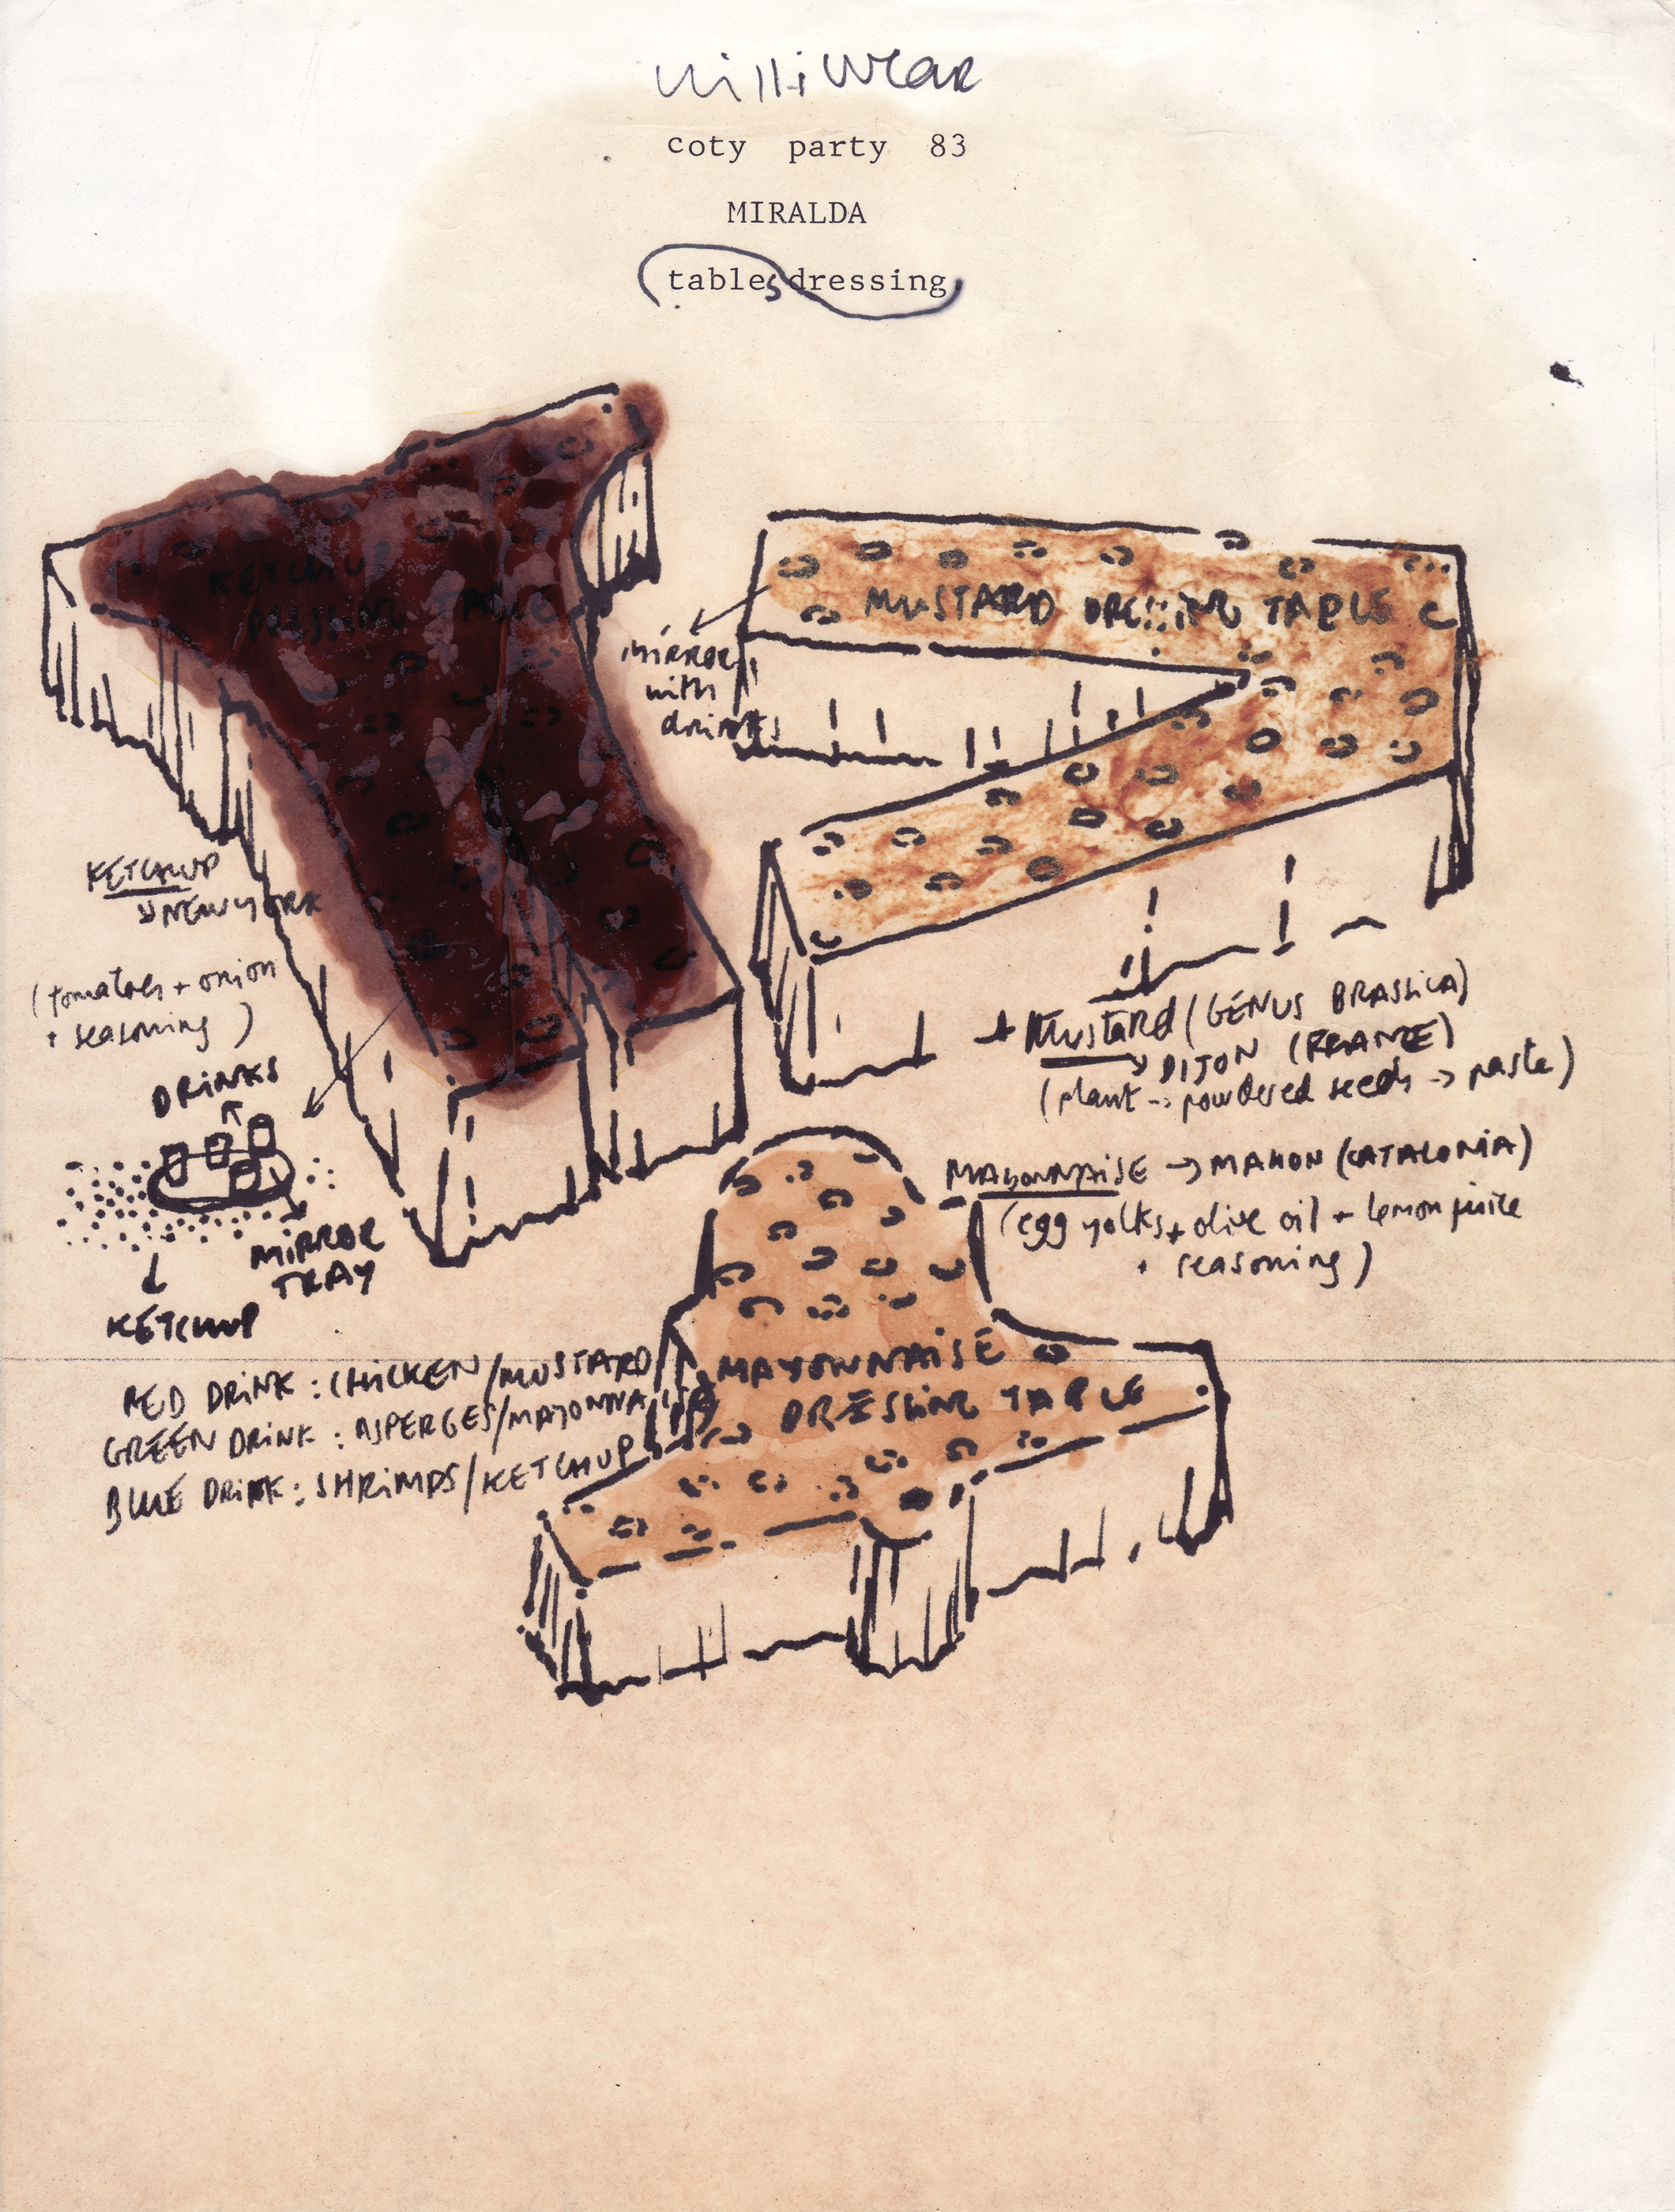 WilliWear
coty party 83
MIRALDA
tables dressing
KETCHUP
DRESSING TABLE
MUSTARD DRESSING TABLE
MIRROR
with
drinks
KETCHUP
→ NEW YORK
(tomatoes + onion
+ seasoning)
DRINKS
MIRROR
TRAY
KETCHUP
+ Mustard (GENUS BRASSICA)
→ DIJON (FRANCE)
(plant → powdered seeds → paste)
MAYONNAISE → MAHON (CATALONIA)
(egg yolks + olive oil + lemon juice
+ seasoning)
MAYONNAISE
DRESSING TABLE
RED DRINK : CHICKEN/MUSTARD
GREEN DRINK : ASPERGES/MAYONNAISE
BLUE DRINK : SHRIMPS/KETCHUP